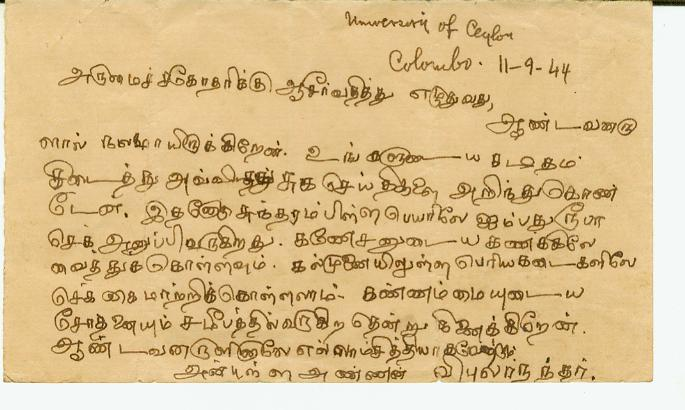 University of Ceylon
Colombo. 11-9-44
அருமைச் சகோதரிக்கு ஆசீர்வதித்து எழுதுவது,
ஆண்டவனரு
ளால் நலமாயிருக்கிறேன். உங்களுடைய கடிதம்
கிடைத்து அவ்விடத்து சுக செய்திகளை அறிந்துகொண்
டேன். இத்துடன் சுந்தரம்பிள்ளை பெயரிலே ஐம்பது ரூபா
செக் அனுப்பிவருகிறது. கணேசனுடைய கணக்கிலே
வைத்துக்கொள்ளவும். கல்முனையிலுள்ள பெரியகடைகளிலே
செக்கை மாற்றிக்கொள்ளலாம். கண்ணம்மையுடைய
சோதனையும் சமீபத்தில்வருகிறதென்று நினைக்கிறேன்.
ஆண்டவனருளினாலே எல்லாம்சித்தியாகவேண்டும்.
அன்புள்ள அண்ணன் விபுலாநந்தர்.